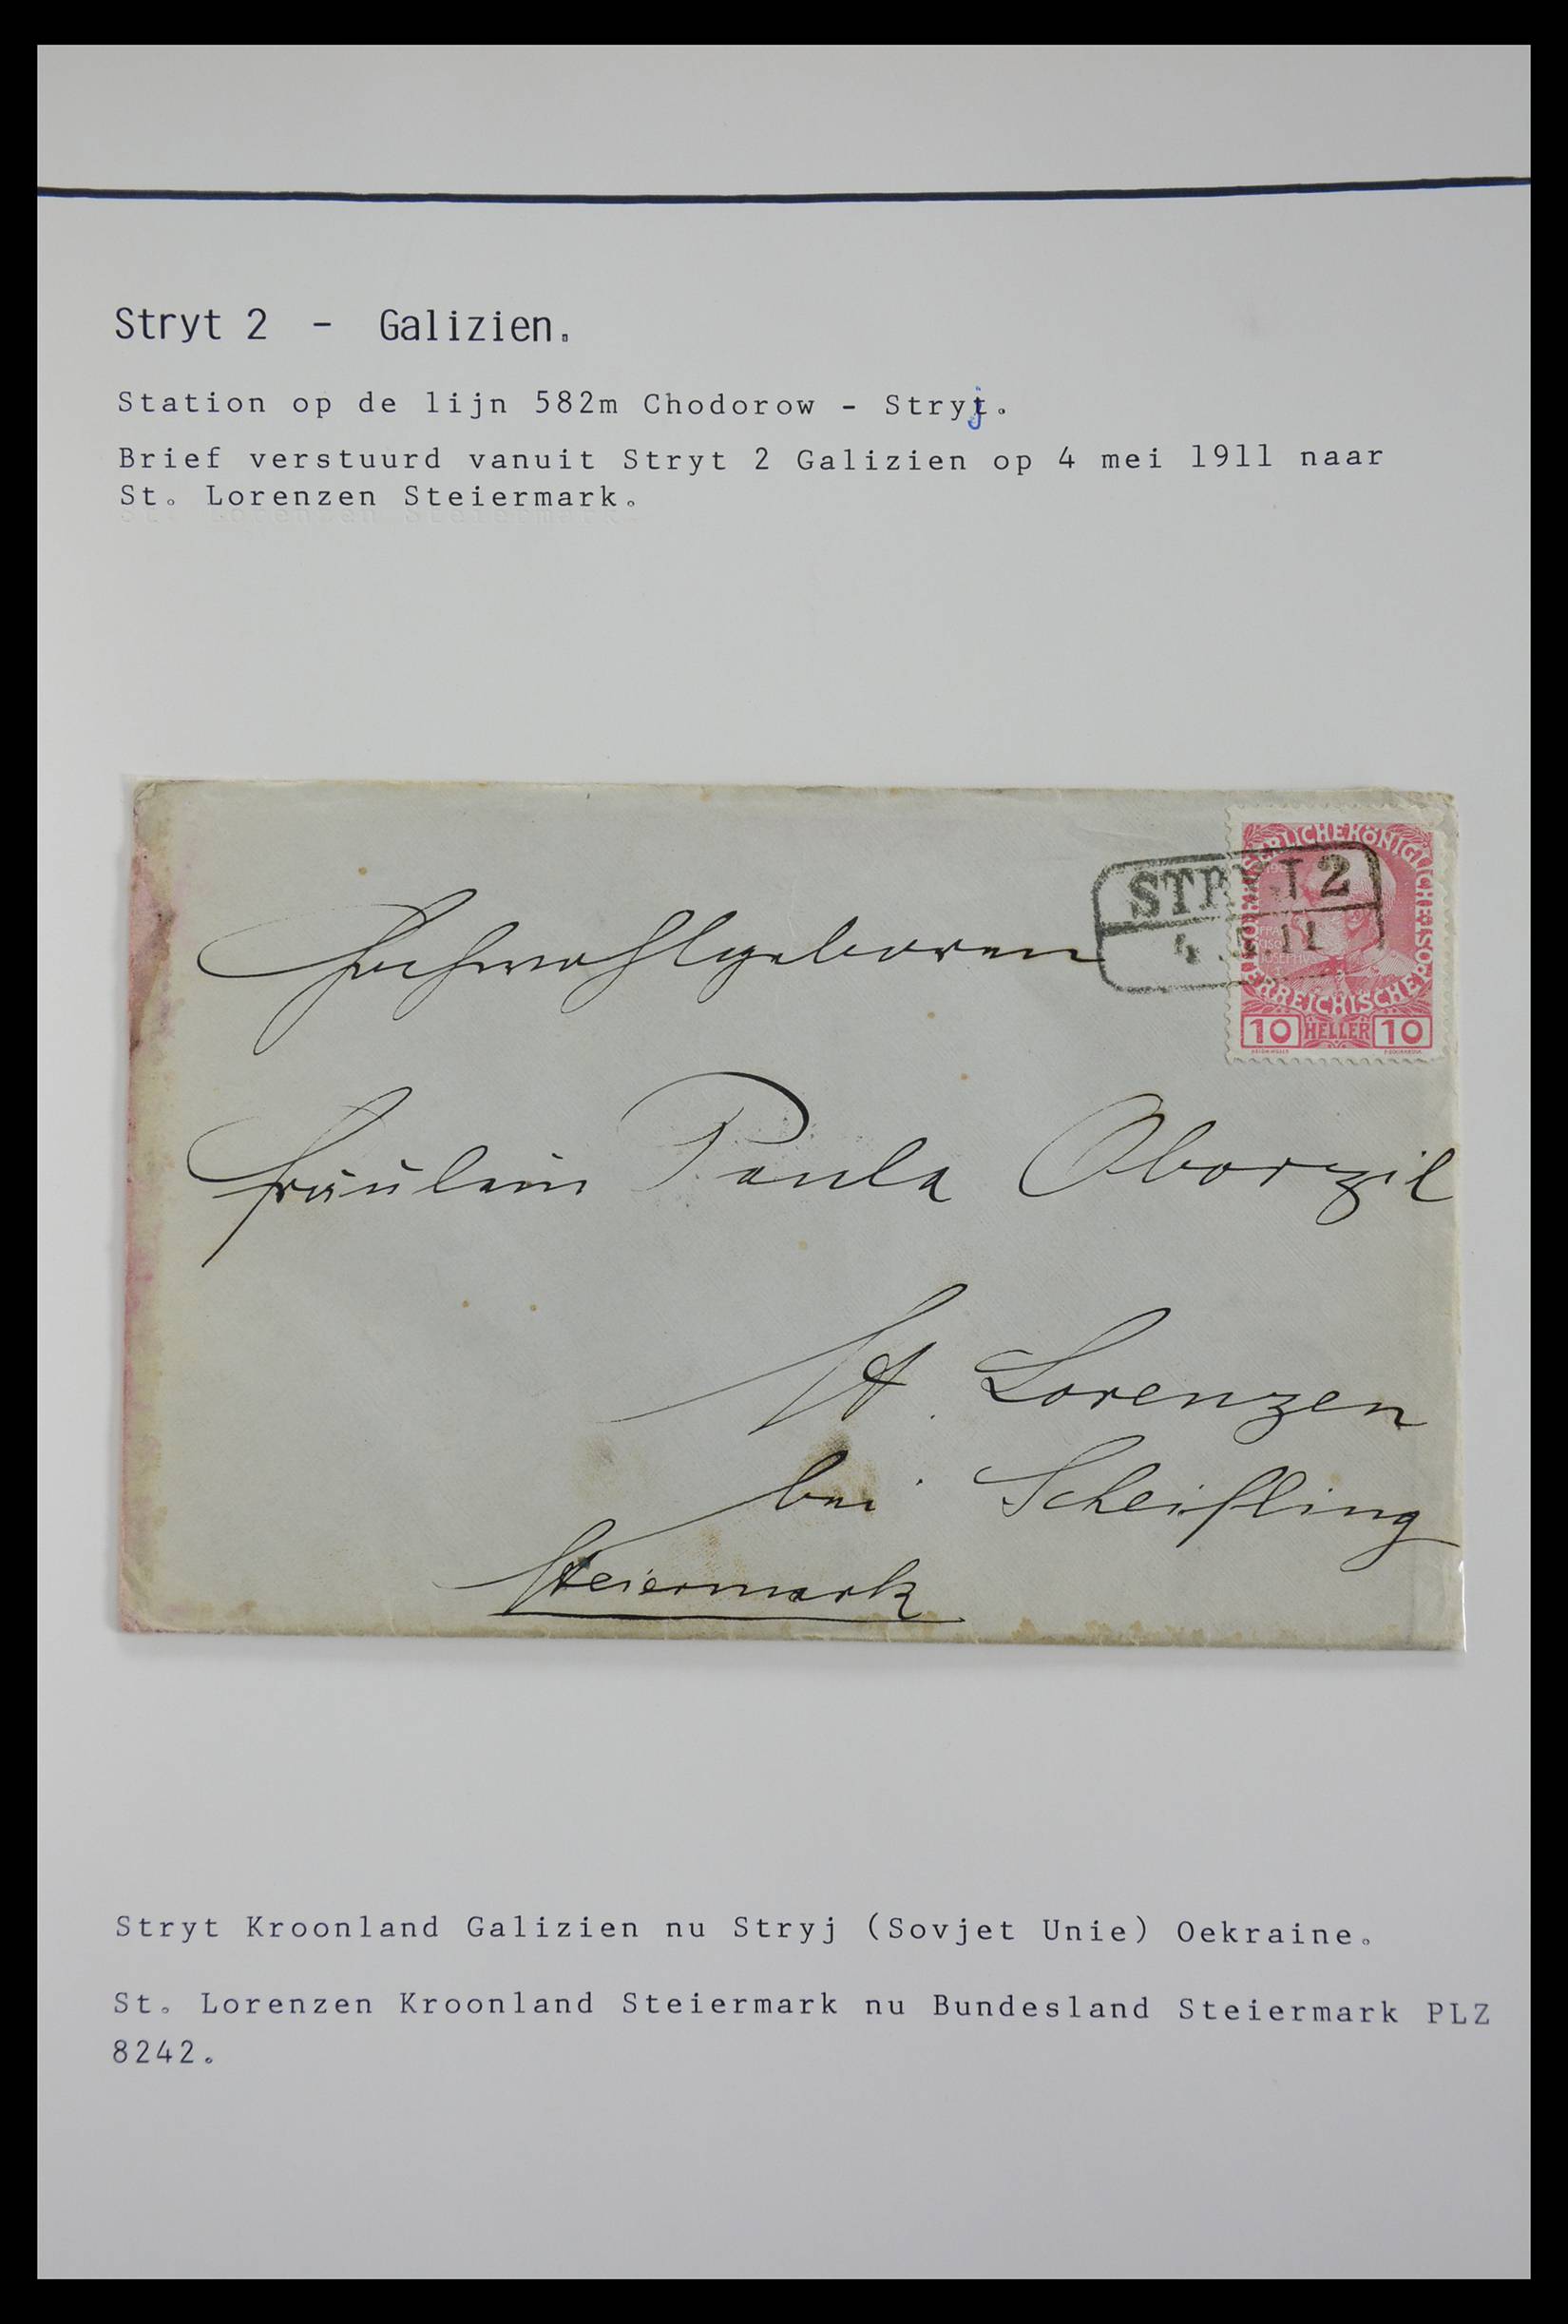 Stryt 2 - Galizien.
Station op de lijn 582m Chodorow - Stryj.
Brief verstuurd vanuit Stryt 2 Galizien op 4 mei 1911 naar
St. Lorenzen Steiermark.
STRYJ 2
4 11
KAISERLICHE KÖNIGLICHE ÖSTERREICHISCHE
10 HELLER 10
Hochwohlgeboren
Fräulein Paula Oborzil
St. Lorenzen
bei Scheifling
Steiermark
Stryt Kroonland Galizien nu Stryj (Sovjet Unie) Oekraine.
St. Lorenzen Kroonland Steiermark nu Bundesland Steiermark PLZ
8242.